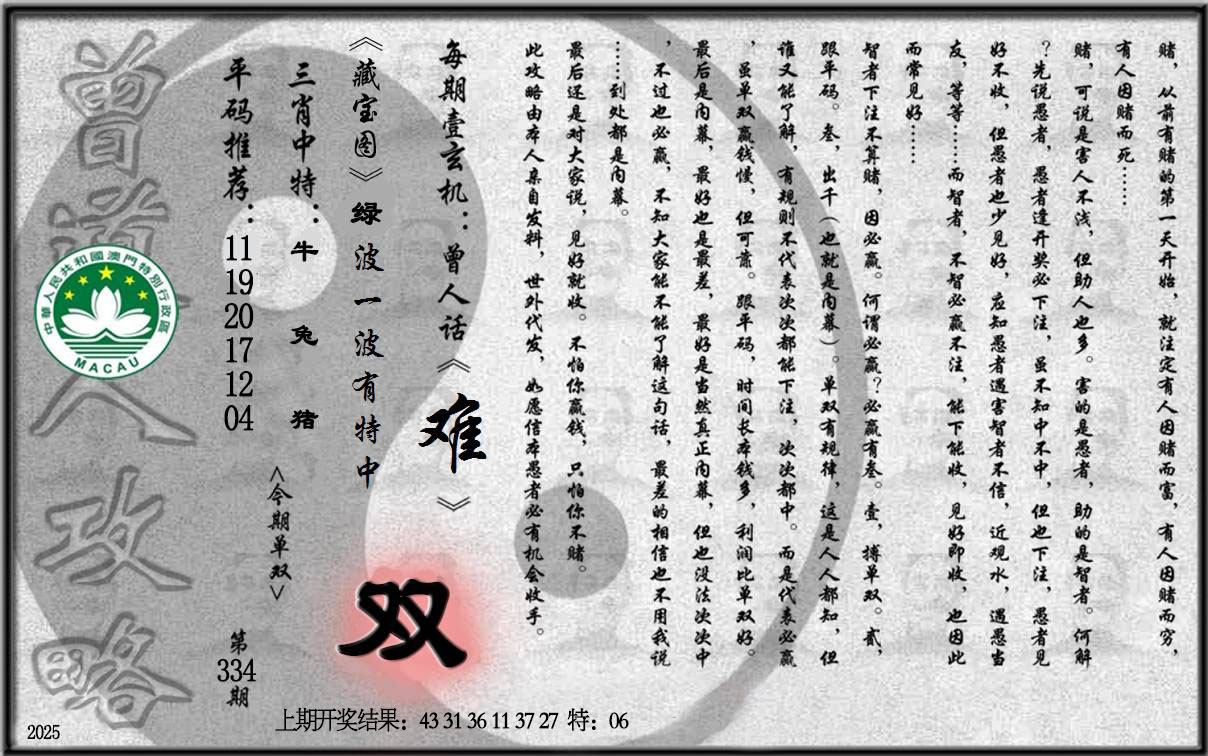 赌，从前有赌的第一天开始，就注定有人因赌而富，有人因赌而穷，
有人因赌而死……
赌，可说是害人不浅，但助人也多。害的是愚者，助的是智者。何解
？先说愚者，愚者逢开奖必下注，虽不知中不中，但也下注，愚者见
好不收，但愚者也少见好，应知愚者遇害智者不信，近观水，遇愚当
友，等等……而智者，不智必赢不注，能下能收，见好即收，也因此
而常见好……
智者下注不算赌，因必赢。何谓必赢？必赢有叁。壹，搏单双。贰，
跟平码。叁，出千（也就是内幕）。单双有规律，这是人人都知，但
谁又能了解，有规则不代表次次都能下注，次次都中。而是代表必赢
，虽单双赢钱慢，但可靠。跟平码，时间长本钱多，利润比单双好。
最后是内幕，最好也是最差，最好是当然真正内幕，但也没法次次中
，不过也必赢，不知大家能不能了解这句话，最差的相信也不用我说
……到处都是内幕。
最后还是对大家说，见好就收。不怕你赢钱，只怕你不赌。
此攻略由本人亲自发料，世外代发，如愿信本愚者必有机会收手。
每期壹玄机：曾人话《难》
《藏宝图》绿波一波有特中
双
三肖中特：牛 兔 猪
<今期单双>
平码推荐：11 19 20 17 12 04
第334期
曾道人攻略
中華人民共和國澳門特別行政區
MACAU
上期开奖结果：43 31 36 11 37 27 特：06
2025